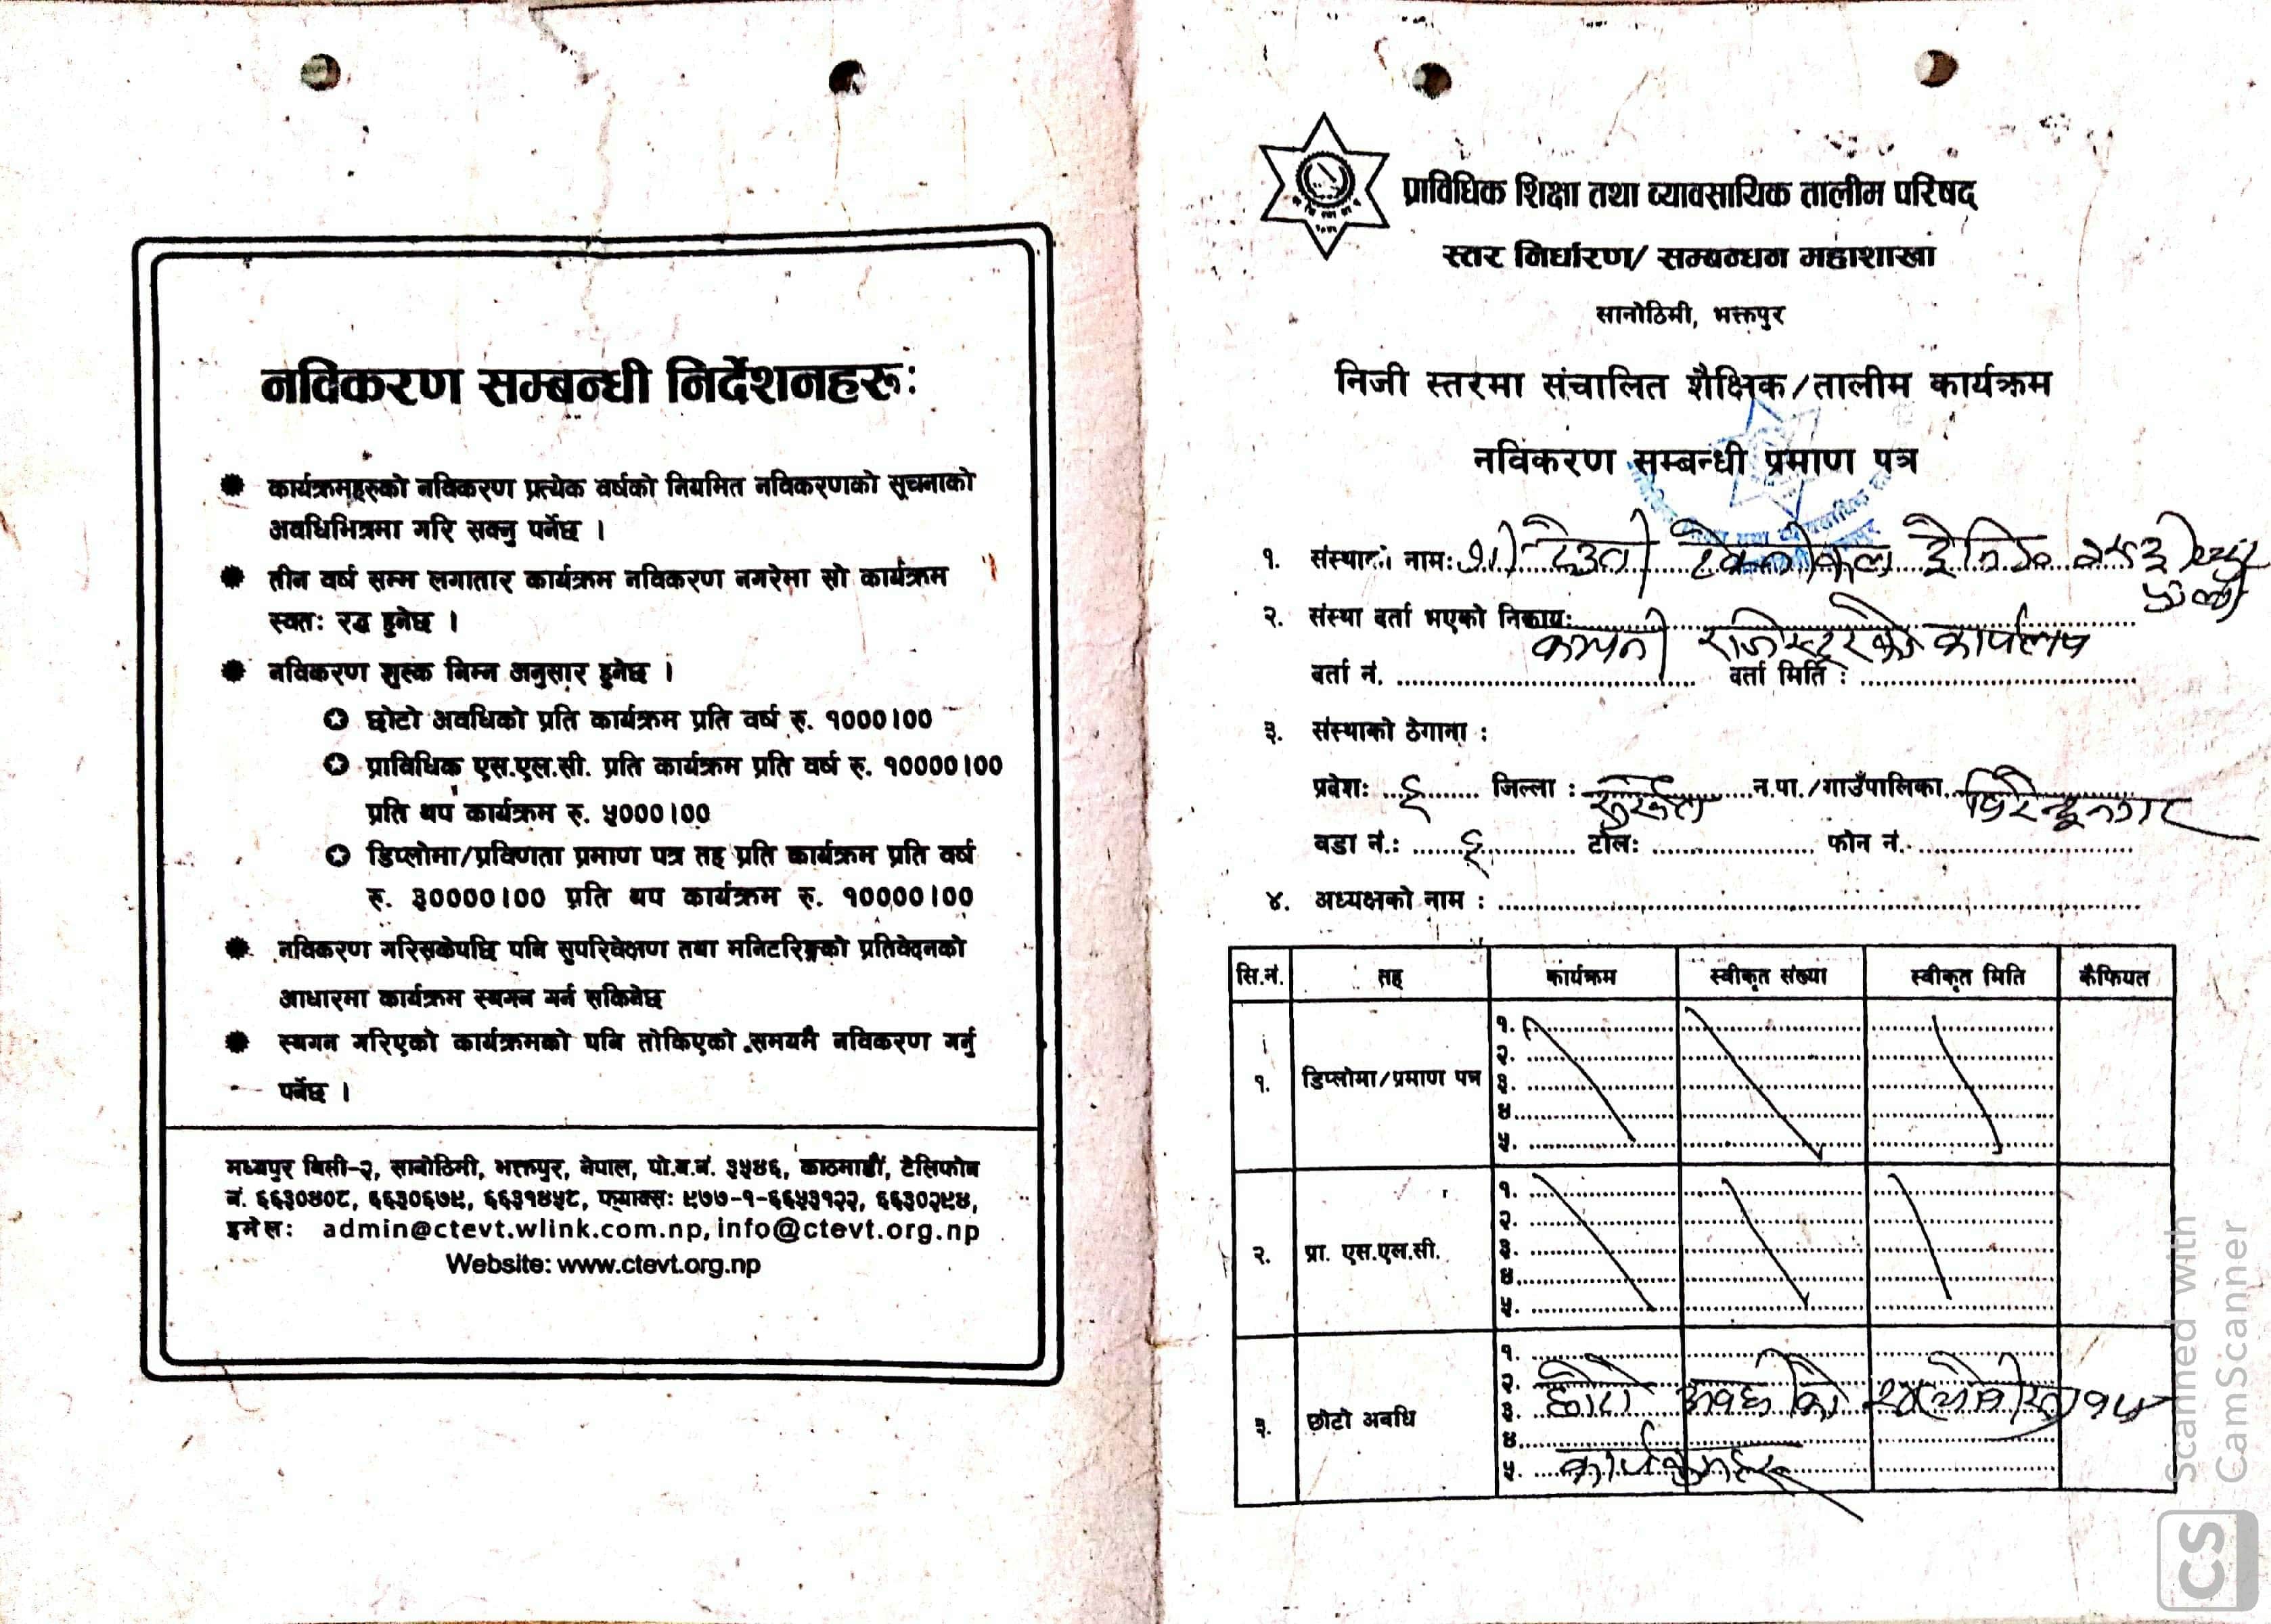 नविकरण सम्बन्धी निर्देशनहरू:
कार्यक्रमहरुको नविकरण प्रत्येक वर्षको नियमित नविकरणको सूचनाको
अवधिभित्रमा गरि सक्नु पर्नेछ ।
तीन वर्ष सम्म लगातार कार्यक्रम नविकरण नगरेमा सो कार्यक्रम
स्वतः रद्ध हुनेछ ।
नविकरण शुल्क निम्न अनुसार हुनेछ ।
छोटो अवधिको प्रति कार्यक्रम प्रति वर्ष रु. १०००।००
प्राविधिक एस.एल.सी. प्रति कार्यक्रम प्रति वर्ष रु. १००००।००
प्रति थप कार्यक्रम रु. ५०००।००
डिप्लोमा/प्रविणता प्रमाण पत्र तह प्रति कार्यक्रम प्रति वर्ष
रु. ३००००।०० प्रति थप कार्यक्रम रु. १००००।००
नविकरण गरिसकेपछि पनि सुपरिवेक्षण तथा मनिटरिङ्गको प्रतिवेदनको
आधारमा कार्यक्रम स्थगन गर्न सकिनेछ
स्थगन गरिएको कार्यक्रमको पनि तोकिएको समयमै नविकरण गर्नु
पर्नेछ ।
मध्यपुर थिमी-२, सानोठिमी, भक्तपुर, नेपाल, पो.ब.नं. ३५४६, काठमाडौं, टेलिफोन
नं. ६६३०४०८, ६६३०६७९, ६६३१४५८, फ्याक्सः ९७७-१-६६५३१२२, ६६३०२९४,
इमेलः admin@ctevt.wlink.com.np, info@ctevt.org.np
Website: www.ctevt.org.np
प्राविधिक शिक्षा तथा व्यावसायिक तालीम परिषद्
स्तर निर्धारण/ सम्बन्धन महाशाखा
सानोठिमी, भक्तपुर
निजी स्तरमा संचालित शैक्षिक/तालीम कार्यक्रम
नविकरण सम्बन्धी प्रमाण पत्र
१. संस्थाको नाम: श्री देउती टेक्नीकल
२. संस्था दर्ता भएको निकाय:
कम्पनी रजिस्ट्रारको कार्यालय
दर्ता नं. दर्ता मिति :
३. संस्थाको ठेगाना :
प्रदेशः ६ जिल्ला : सुर्खेत न.पा./गाउँपालिका विरेन्द्रनगर
वडा नं.: ६ टोल: फोन नं.
४. अध्यक्षको नाम :
सि.नं. तह कार्यक्रम स्वीकृत संख्या स्वीकृत मिति कैफियत
१. डिप्लोमा/प्रमाण पत्र
१.
२.
३.
४.
५.
२. प्रा. एस.एल.सी.
१.
२.
३.
४.
५.
३. छोटो अवधि
१.
२.
३. छोटो अवधिको १५
४.
५. कार्यक्रमहरू
Scanned with
CamScanner
CS